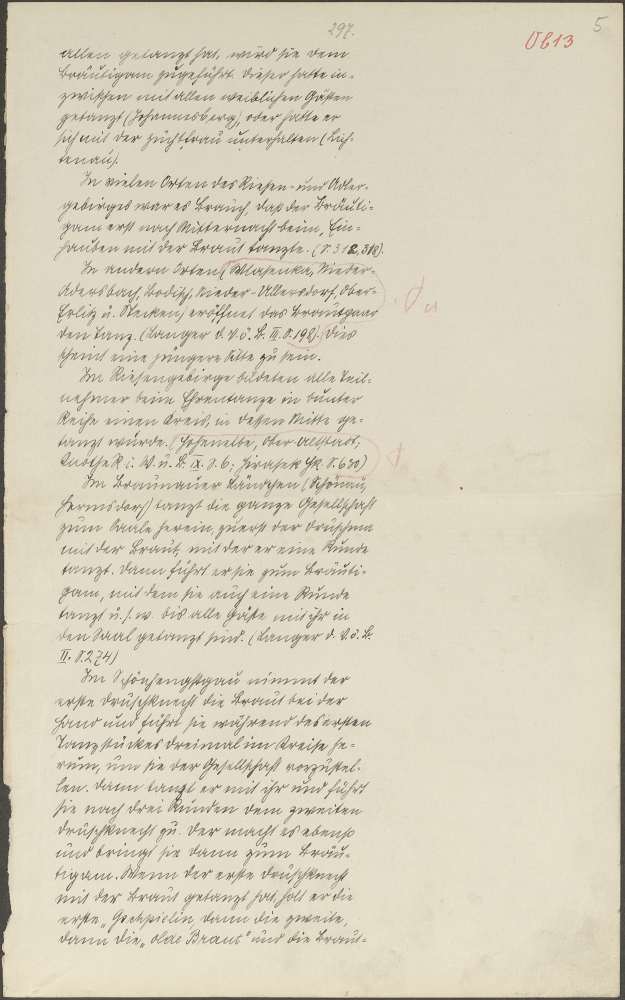 297.
Ob13
5
allen getanzt hat, wird sie dem
Bräutigam zugeführt. Dieser hatte in-
zwischen mit allen weiblichen Gästen
getanzt (Johannisberg), oder hatte er
sich mit der Züchtfrau unterhalten (Lich-
tenau).
In vielen Orten des Riesen- und Adler-
gebirges war es Brauch, daß der Bräuti-
gam erst nach Mitternacht beim Ein-
hauben mit der Braut tanzte. (S. 312, 318).
In andern Orten (Wlasenka, Nieder-
Adersbach, Bodisch, Nieder-Albersdorf, Ober-
u. Stecken) eröffnet das Brautpaar
den Tanz. (Langer d. V. ö. B. III. S. 198). Dies
scheint eine jüngere Sitte zu sein.
Im Riesengebirge bildeten alle Teil-
nehmer beim Ehrentanze in bunter
Reihe einen Kreis, in dessen Mitte ge-
tanzt wurde. (Hohenelbe, Ober Altstadt,
Knothe R. i. W. u. B. IX. S. 6; Jirasek S. 630)
Im Braunauer Ländchen (Schönau,
Hermsdorf) tanzt die ganze Gesellschaft
zum Saale herein, zuerst der Druschma
mit der Braut, mit der er eine Runde
tanzt. Dann führt er sie zum Bräuti-
gam, mit dem sie auch eine Runde
tanzt u. s. w. bis alle Gäste mit ihr in
den Saal getanzt sind. (Langer d. V. ö. B.
II. S. 274)
Im Schönhengstgau nimmt der
erste Druschknecht die Braut bei der
Hand und führt sie während des ersten
Tanzstückes dreimal im Kreise he-
rum, um sie der Gesellschaft vorzustel-
len. Dann tanzt er mit ihr und führt
sie nach drei Runden dem zweiten
Druschknecht zu. Der macht es ebenso
und bringt sie dann zum Bräu-
tigam. Wenn der erste Druschknecht
mit der Braut getanzt hat, holt er die
erste „ dann die zweite,
dann die „olde Braut" und die Braut-